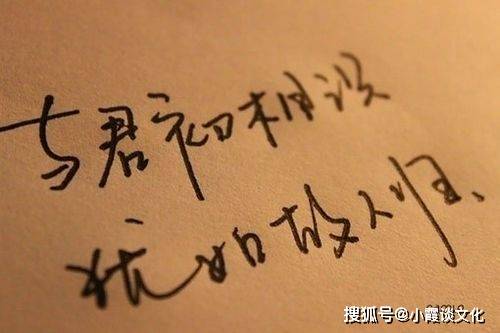 与君初相识
犹如故人归、
搜狐号@小霞谈文化